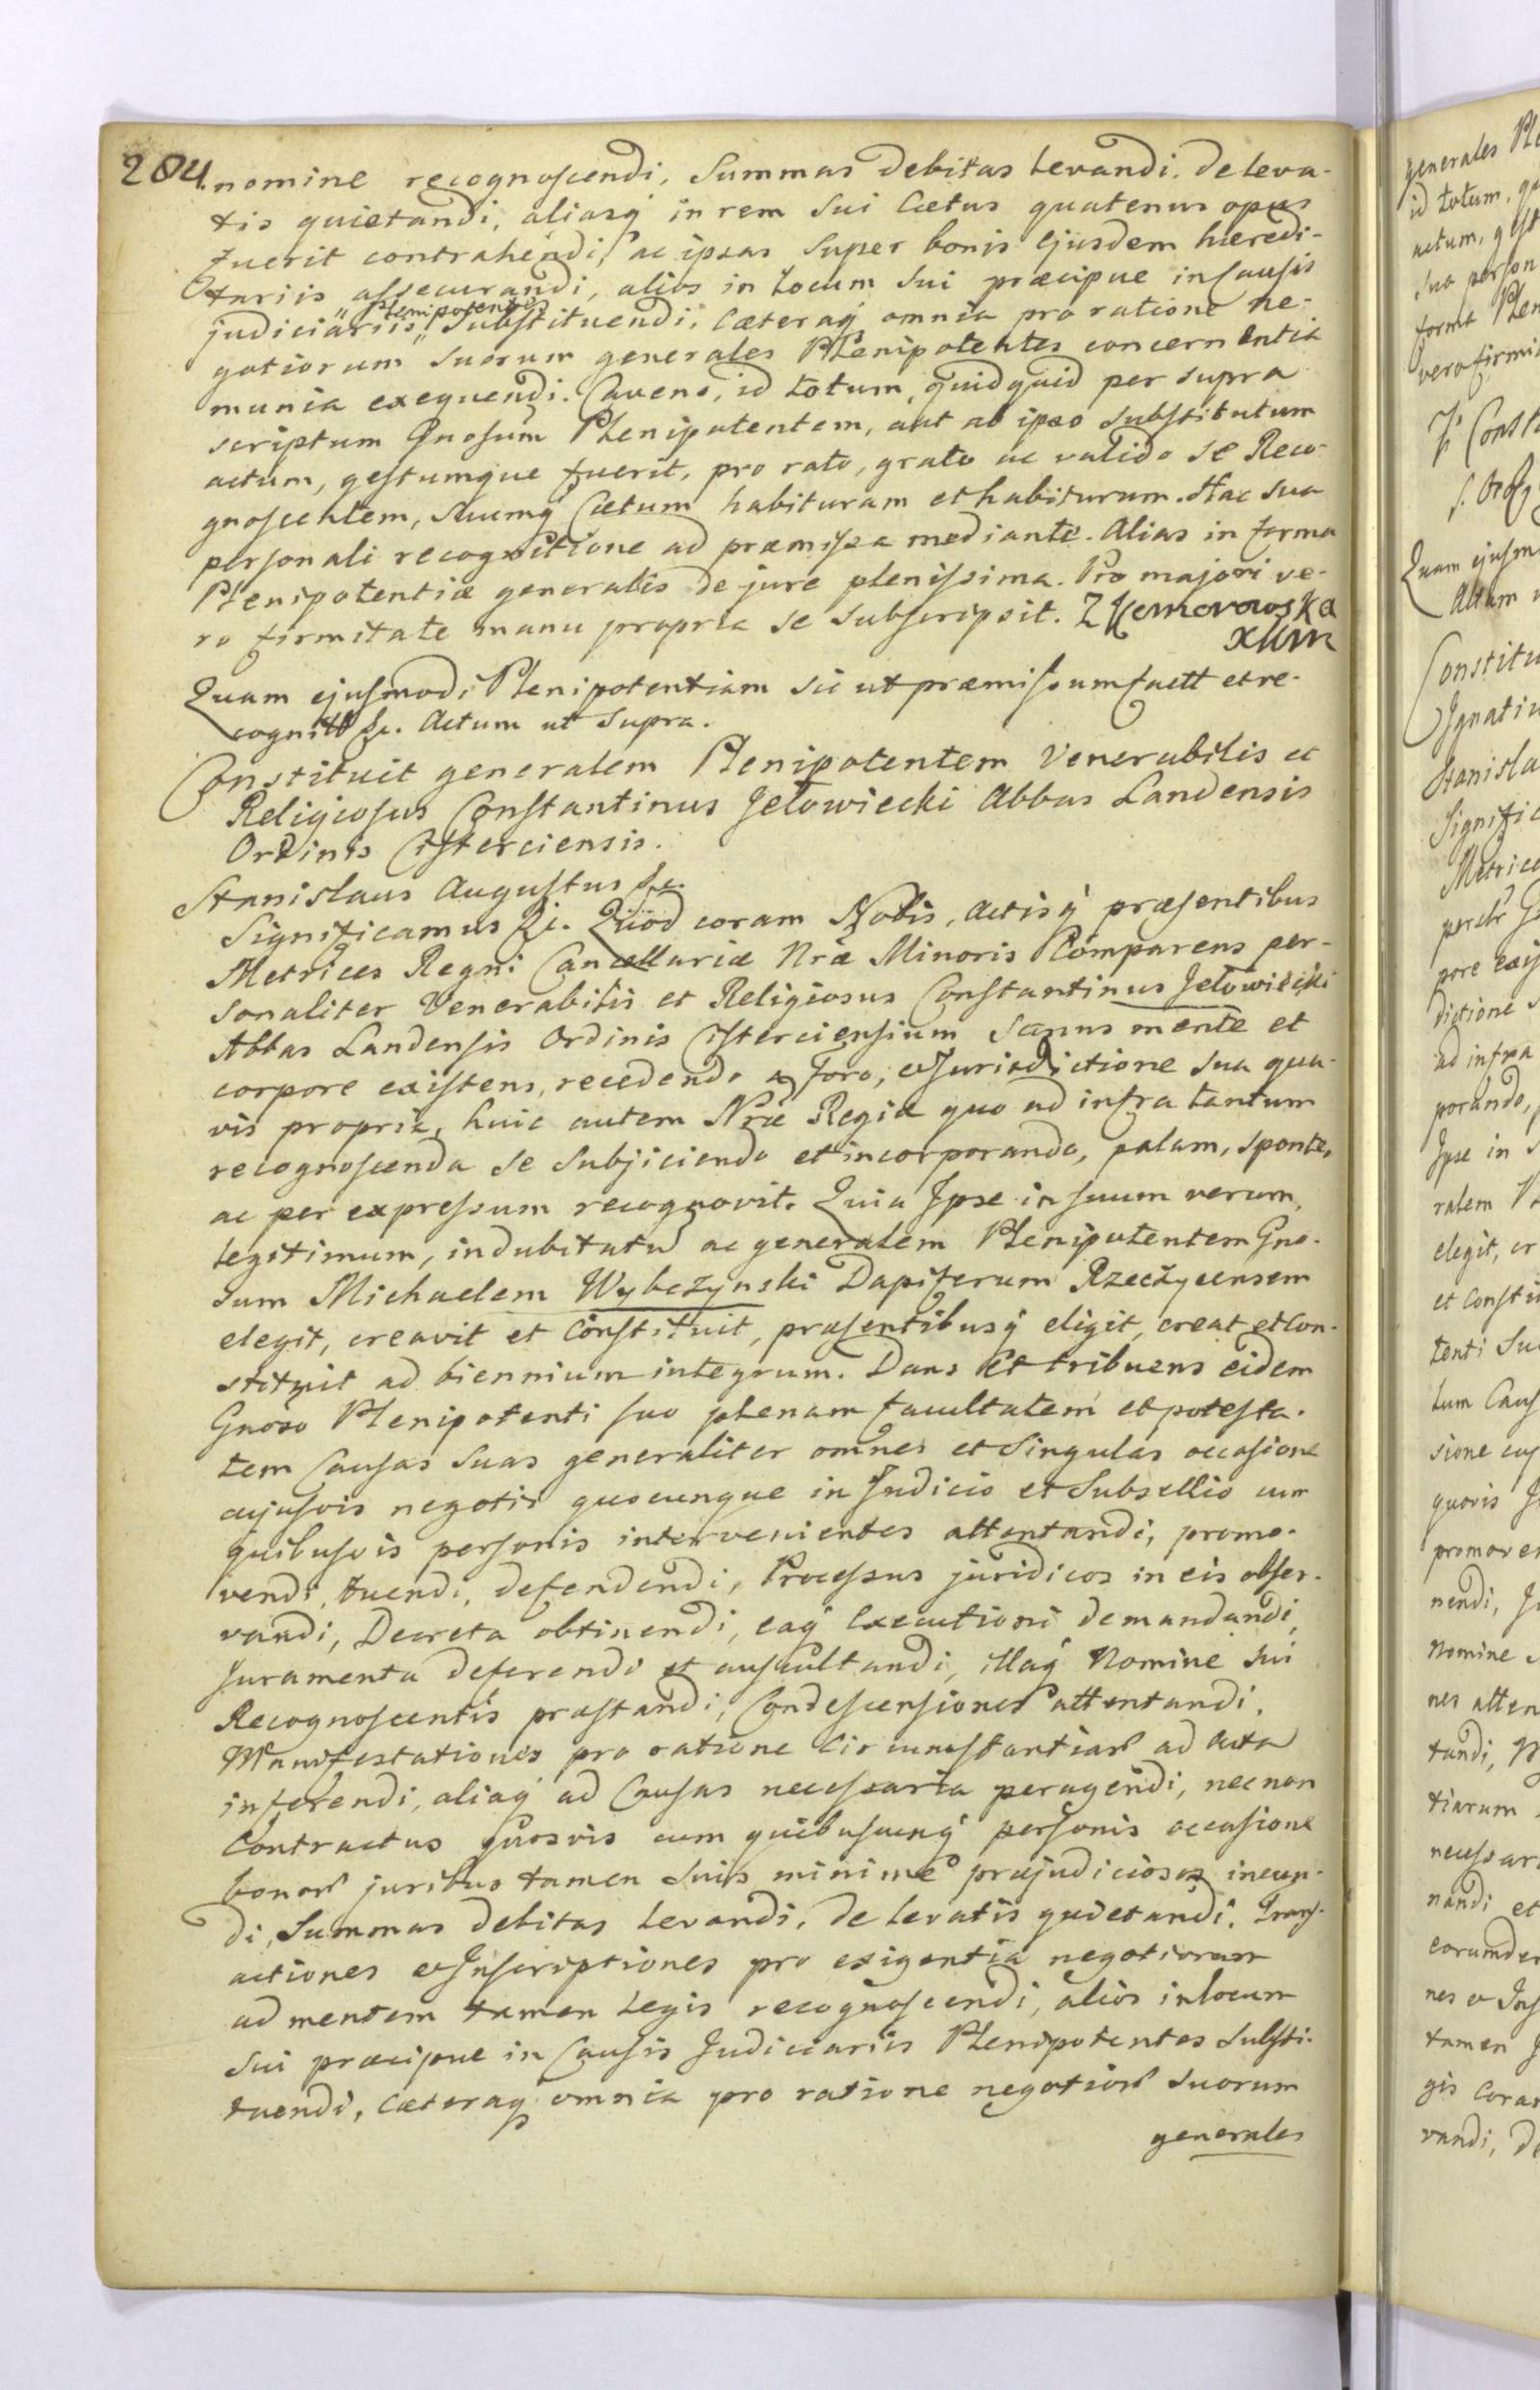 204.
nomine recognoscendi, Summas debitas levandi, de leva-
tis quietandi, aliasq in rem sui Cætus quatenus opus
fuerit contrahendi, ac ipsas super bonis ejusdem hæredi-
tariis assecurandi, alios in locum sui præcipue in Causis
judiciariis "Plenipotentes" substituendi, Cæteraq omnia pro ratione ne-
gotiorum suorum generales Plenipotentes concernentia
munia exequendi. Cavens, id totum, quidquid per supra
scriptum Gnosum Plenipotentem, aut ab ipso substitutum
actum, gestumque fuerit, pro rato, grato ac valido se Reco-
gnoscentem, suumq Cætum habituram et habiturum. Hac sua
personali recognitione ad præmissa mediante. Alias in forma
Plenipotentiæ generalis de jure plenissima. Pro majori ve-
ro firmitate manu propria se subscripsit.
Quam ejusmodi Plenipotentiam sic ut præmissum factt et re-
cognitt &c. Actum ut supra.
Constituit generalem Plenipotentem Venerabilis et
Religiosus Constantinus Jełowiecki Abbas Landensis
Ordinis Cisterciensis.
Stanislaus Augustus &c.
Significamus &c. Quod coram Nobis, Actisq præsentibus
Metrices Regni Cancellariæ Nræ Minoris Comparens per-
sonaliter Venerabilis et Religiosus Constantinus Jełowiecki
Abbas Landensis Ordinis Cisterciensium Sanus mente et
corpore existens, recedendo a foro, et Jurisdictione sua qua-
vis propria, huic autem Nræ Regiæ quo ad infra tantum
recognoscenda se subjiciendo et incorporando, palam, sponte,
ac per expressum recognovit. Quia Ipse in suum verum,
legitimum, indubitatū ac generalem Plenipotentem Gno-
sum Michaelem Wybczynski Dapiferum Rzeczycensem
elegit, creavit et Constituit, præsentibusq eligit, creat et Con-
stituit ad biennium integrum. Dans et tribuens eidem
Gnoso Plenipotenti suo plenam facultatem et potesta-
tem Causas suas generaliter omnes et singulas occasione
cujusvis negotii quocunque in Judicio et Subsellio cum
quibusvis personis intervenientes attentandi, promo-
vendi, tuendi, defendendi, Processus juridicos in eis obser-
vandi, Decreta obtinendi, eaq Executioni demandandi,
Juramenta deferendi et auscultandi, illaq Nomine sui
Recognoscentis præstandi, Condescensiones attentandi,
Manifestationes pro ratione Circumstantiar ad Acta
inferendi, aliaq ad Causas necessaria peragendi, nec non
Contractus quosvis cum quibuscunq personis occasione
bonor juribus tamen suis minime præjudiciosos ineun-
di, Summas debitas levandi, de levatis quietandi, Trans-
actiones et Inscriptiones pro exigentia negotiorum
ad mentem tamen Legis recognoscendi, alios in locum
sui præcipue in Causis Judiciariis Plenipotentes substi-
tuendi, Cæteraq omnia pro ratione negotior suorum
generales